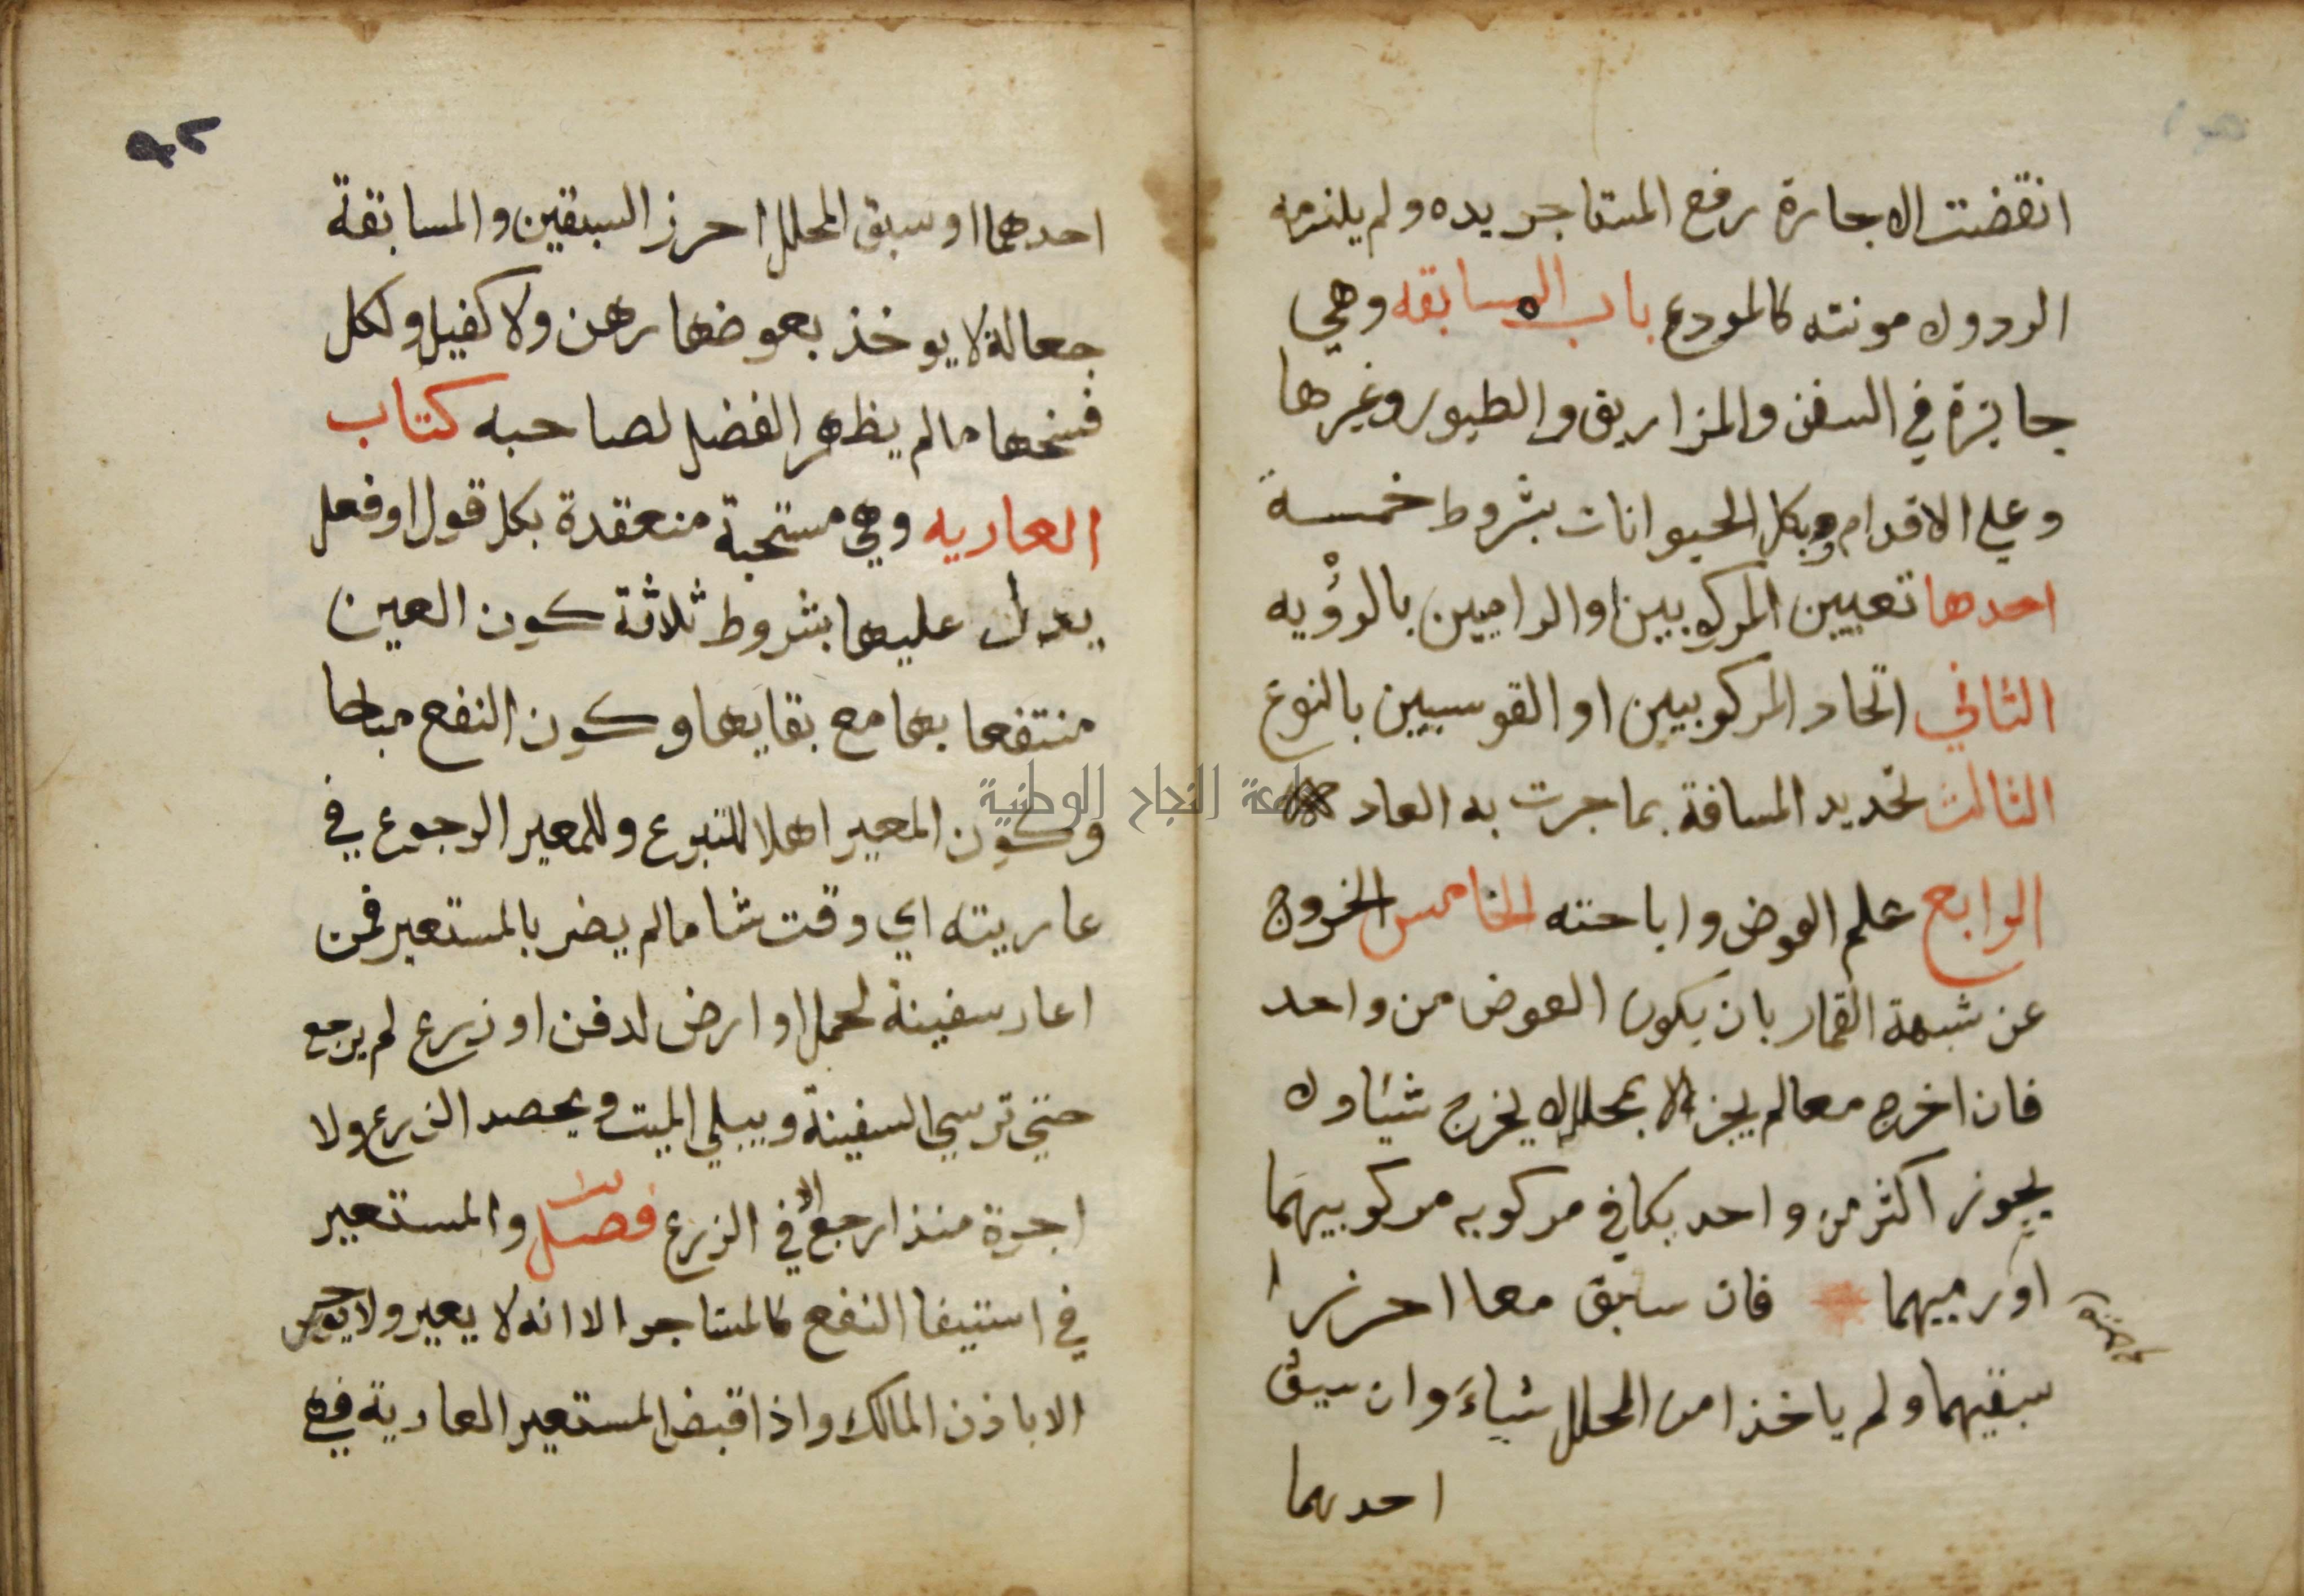 انقضت الاجارة رفع المستاجر يده ولم يلزمه
الردولا مونته كالمودع باب المسابقه وهي
جايزة في السفن والمزاريق والطيور وغيرها
وعلي الاقدام وبكل الحيوانات بشروط خمسة
احدها تعيين المركوبين والراميين بالرؤيه
الثاني اتحاد المركوبين او القوسين بالنوع
الثالث تحديد المسافة بما جرت به العاده
الرابع علم العوض واباحته الخامس الخروج
عن شبهة القمار بان يكون العوض من واحد
فان اخرج معا لم يجز الا بمحلل لا يخرج شيئا ولا
يجوز اكثر من واحد يكافي مركوبه مركوبيهما
او رمييهما فان سابق معا احرزا
سبقيهما ولم ياخذا من المحلل شياء وان سبق
احدهما
٩٢
احدهما او سبق المحلل احرز السبقين والمسابقة
جعالة لا يوخذ بعوضها رهن ولا كفيل ولكل
فسخها ما لم يظهر الفضل لصاحبه كتاب
العاريه وهي مستحبة منعقدة بكل قول او فعل
يدل عليها بشروط ثلاثة كون العين
منتفعا بها مع بقايها وكون النفع مباحا
وكون المعير اهلا للتبرع وللمعير الرجوع في
عاريته اي وقت شا ما لم يضر بالمستعير فمن
اعار سفينة لحمل او ارض لدفن او زرع لم يرجع
حتي ترسي السفينة ويبلي الميت ويحصد الزرع ولا
اجرة منذ ارجع الا في الزرع فصل والمستعير
في استيفا النفع كالمستاجر الا انه لا يعير ولا يوجر
الا باذن المالك واذا قبض المستعير العارية فهي
جامعة النجاح الوطنية